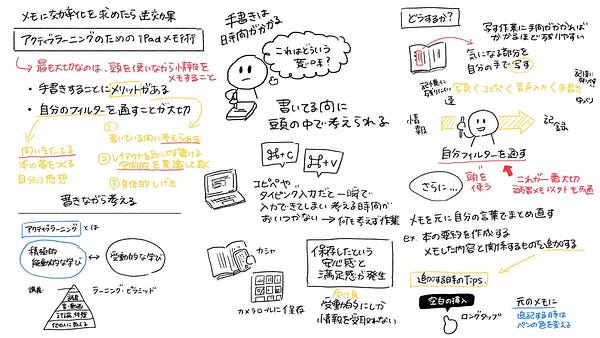 メモに効率化を求めたら逆効果
アクティブラーニングのための iPadメモ術
最も大切なのは、頭を使いながら情報を
メモすること
・手書きすることにメリットがある
・自分のフィルターを通すことが大切
問いをたてる
本の帯をつくる
自分の感想
① 書いている間に考えられる
② レイアウトを
③ 身体的な
書きながら考える
アクティブラーニング とは
積極的
能動的な学び
↔
受動的な学び
講義
読書
ラーニング・ピラミッド
他の人に教える
手書きは
時間がかかる
これはどういう
意味?
書いてる間に
頭の中で考えられる
⌘+C
⌘+V
コピペや
タイピング入力だと一瞬で
入力できてしまい考える時間が
おいつかない → 何も考えず作業
カシャ
カメラロールに保存
保存したという
安心感と
満足感が発生
受け身
受動的にしか
情報を受取れない
どうするか?
写す作業に時間がかかれば
かかるほど残りやすい
気になる部分を
自分の手で写す
記憶に
残りにくい
写真<コピペ<音声入力<手書き
速
情報
記録
自分フィルターを通す
頭を
使う
これが一番大切
読書メモ以外も共通
さらに…
メモを元に自分の言葉でまとめ直す
ex. 本の要約を作成する
メモした内容と関係するものを追加する
追加する時のTips.
空白の挿入
ロングタップ
元のメモに
追記する時は
ペンの色を変える